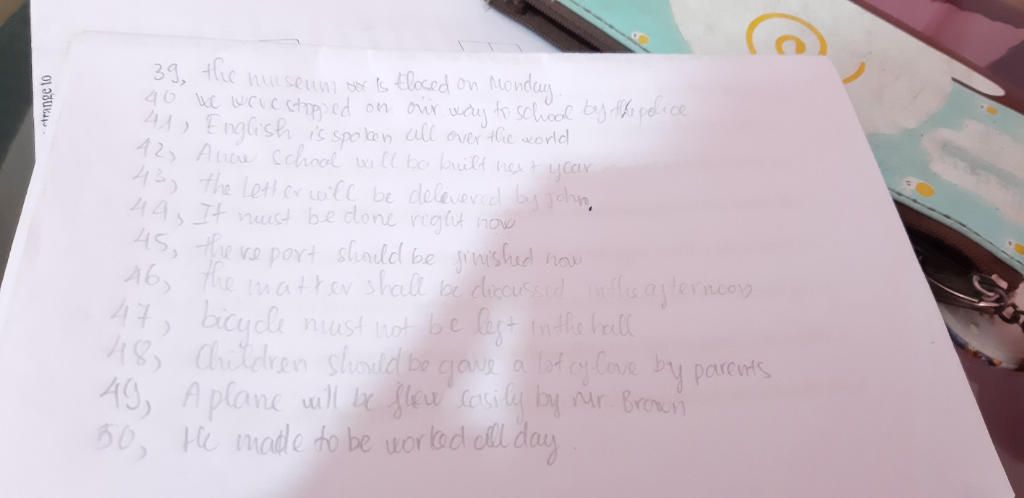 39, the museum is closed on Monday.
40 we were stopped on our way to school by the police
41, English is spoken all over the world
42, A new school will be built next year
43, the letter will be delevered by John.
44, It must be done right now
45, the report should be finished now
46, the matter shall be discussed in the afternoon
47, bicycle must not be left in the hall
48, Children should be gave a lot of love by parents
49, A plane will be flew easily by Mr. Brown
50, He made to be worked all day.